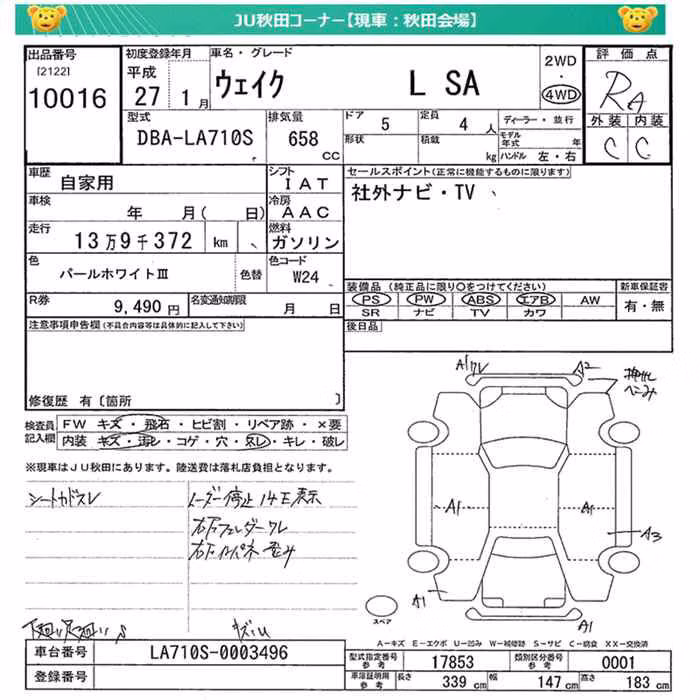 JU秋田コーナー【現車：秋田会場】
出品番号
[2122]
10016
初度登録年月
平成
27 1月
車名・グレード
ウェイク L SA
2WD
・
4WD
評価点
RA
外装 内装
C C
型式
DBA-LA710S
排気量
658
CC
ドア
5
定員
4人
ディーラー・並行
形状
積載
kg
モデル年式 年
ハンドル 左・右
車歴
自家用
シフト
IAT
セールスポイント(正常に機能するものに限ります)
社外ナビ・TV、
車検
年 月( 日)
冷房
AAC
走行
13万9千372 km
燃料
ガソリン
色
パールホワイトⅢ
色替
色コード
W24
装備品(純正品に限り○をつけてください)
新車保証書
PS PW ABS エアB AW
SR ナビ TV カワ
有・無
R券
9,490円
名変通知期限
月 日
後日品
注意事項申告欄(不具合内容等は具体的に記入して下さい)
修復歴 有〔箇所 〕
検査員記入欄
FW キズ・飛石・ヒビ割・リペア跡・×要
内装 キズ・汚レ・コゲ・穴・スレ・キレ・破レ
※現車はJU秋田にあります。陸送費は落札店負担となります。
シートカドスレ
レーダー停止 14E表示
右Fフェンダーワレ
A1ワレ
A2
押出し
へこみ
A1
A1
A3
A1
A1
スペア
A－キズ E－エクボ U－凹み W－補修跡 S－サビ C－腐食 XX－交換済
車台番号
LA710S-0003496
登録番号
型式指定番号
参考
17853
類別区分番号
参考
0001
車庫証明用
参考
長さ
339 cm
幅
147 cm
高さ
183 cm